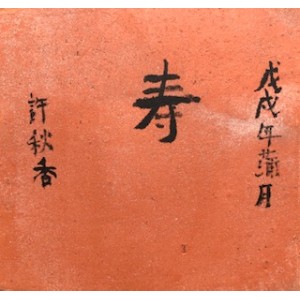 戊戌年蒲月
寿
許秋香